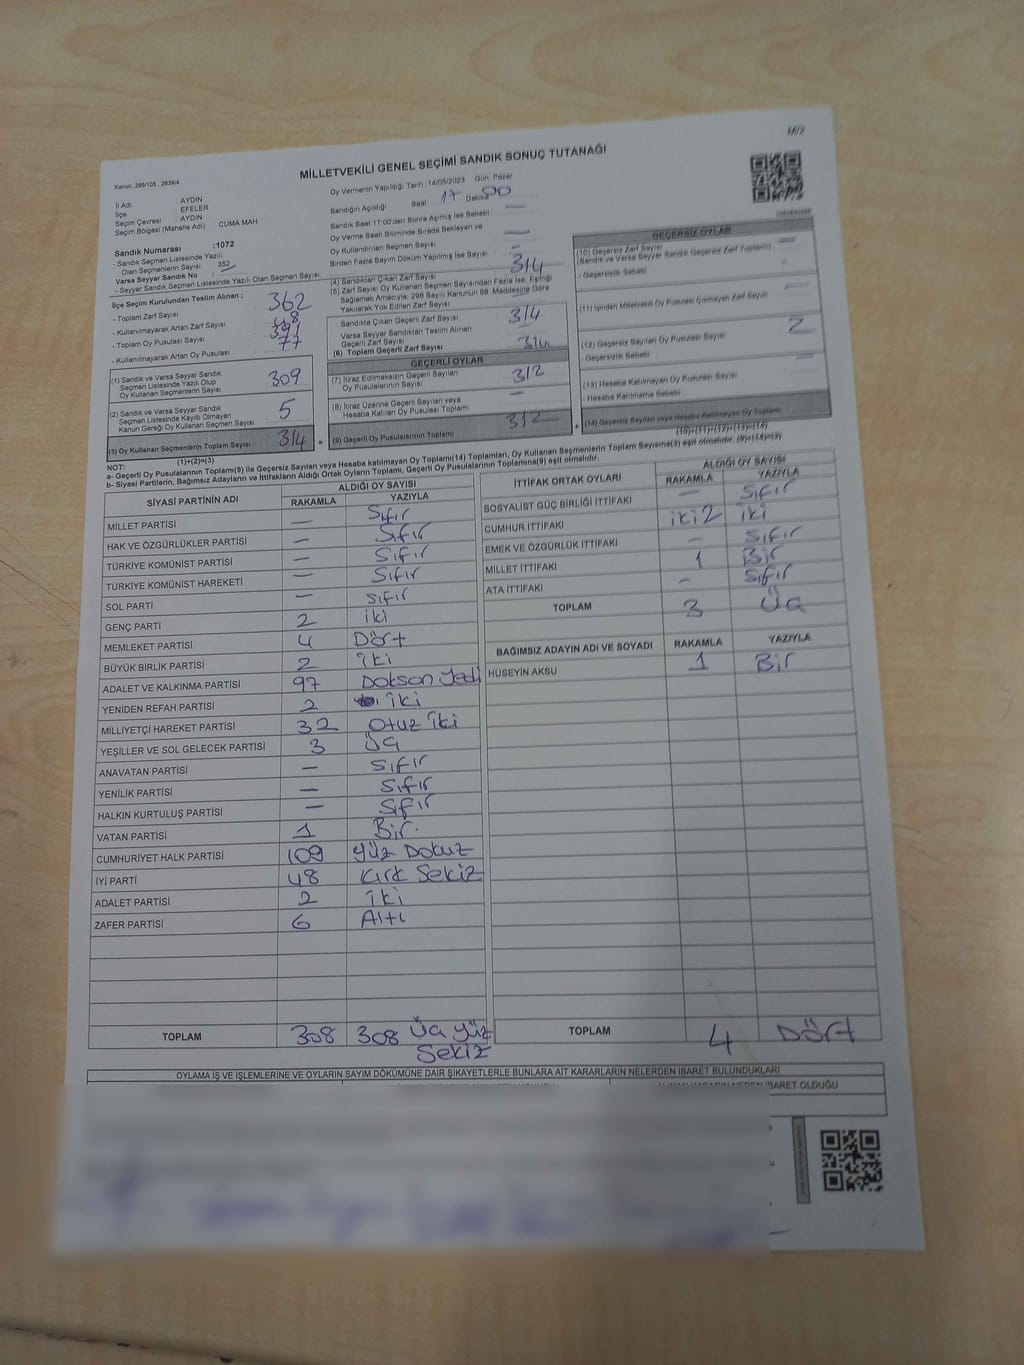 M/2
MİLLETVEKİLİ GENEL SEÇİMİ SANDIK SONUÇ TUTANAĞI
Kanun: 298/105 ; 2839/4
Oy Vermenin Yapıldığı Tarih :14/05/2023 Gün: Pazar
İl Adı : AYDIN
İlçe : EFELER
Seçim Çevresi : AYDIN
Seçim Bölgesi (Mahalle Adı) : CUMA MAH
Sandığın Açıldığı Saat : 17 Dakika 00
Sandık Saat 17:00'den Sonra Açılmış İse Sebebi :
Oy Verme Saati Bitiminde Sırada Bekleyen ve
Oy Kullandırılan Seçmen Sayısı —
Birden Fazla Sayım Döküm Yapılmış İse Sayısı : —
Sandık Numarası :1072
- Sandık Seçmen Listesinde Yazılı
Olan Seçmenlerin Sayısı : 352
Varsa Seyyar Sandık No :
- Seyyar Sandık Seçmen Listesinde Yazılı Olan Seçmen Sayısı:
İlçe Seçim Kurulundan Teslim Alınan ;
- Toplam Zarf Sayısı : 362
- Kullanılmayarak Artan Zarf Sayısı :
- Toplam Oy Pusulası Sayısı :
- Kullanılmayarak Artan Oy Pusulası : 77
(1) Sandık ve Varsa Seyyar Sandık
Seçmen Listesinde Yazılı Olup
Oy Kullanan Seçmenlerin Sayısı 309
(2) Sandık ve Varsa Seyyar Sandık
Seçmen Listesinde Kayıtlı Olmayan
Kanun Gereği Oy Kullanan Seçmen Sayısı 5
(3) Oy Kullanan Seçmenlerin Toplam Sayısı 314
(1)+(2)=(3)
(4) Sandıktan Çıkan Zarf Sayısı 314
(5) Zarf Sayısı Oy Kullanan Seçmen Sayısından Fazla İse, Eşitliği
Sağlamak Amacıyla, 298 Sayılı Kanunun 98. Maddesine Göre
Yakılarak Yok Edilen Zarf Sayısı —
Sandıkta Çıkan Geçerli Zarf Sayısı 314
Varsa Seyyar Sandıktan Teslim Alınan
Geçerli Zarf Sayısı —
(6) Toplam Geçerli Zarf Sayısı 314
GEÇERLİ OYLAR
(7) İtiraz Edilmeksizin Geçerli Sayılan
Oy Pusulalarının Sayısı 312
(8) İtiraz Üzerine Geçerli Sayılan veya
Hesaba Katılan Oy Pusulası Toplamı —
(9) Geçerli Oy Pusulalarının Toplamı 312
GEÇERSİZ OYLAR
(10) Geçersiz Zarf Sayısı
(Sandık ve Varsa Seyyar Sandık Geçersiz Zarf Toplamı) —
- Geçersizlik Sebebi
(11) İçinden Milletvekili Oy Pusulası Çıkmayan Zarf Sayısı —
(12) Geçersiz Sayılan Oy Pusulası Sayısı 2
- Geçersizlik Sebebi
(13) Hesaba Katılmayan Oy Pusulası Sayısı —
- Hesaba Katılmama Sebebi
(14) Geçersiz Sayılan veya Hesaba Katılmayan Oy Toplamı
(10)+(11)+(12)+(13)=(14)
NOT:
a- Geçerli Oy Pusulalarının Toplamı(9) ile Geçersiz Sayılan veya Hesaba katılmayan Oy Toplamı(14) Toplamları, Oy Kullanan Seçmenlerin Toplam Sayısına(3) eşit olmalıdır. (9)+(14)=(3)
b- Siyasi Partilerin, Bağımsız Adayların ve İttifakların Aldığı Ortak Oyların Toplamı, Geçerli Oy Pusulalarının Toplamına(9) eşit olmalıdır.
SİYASİ PARTİNİN ADI ALDIĞI OY SAYISI
RAKAMLA YAZIYLA
MİLLET PARTİSİ — Sıfır
HAK VE ÖZGÜRLÜKLER PARTİSİ — Sıfır
TÜRKİYE KOMÜNİST PARTİSİ — Sıfır
TÜRKİYE KOMÜNİST HAREKETİ — Sıfır
SOL PARTİ — Sıfır
GENÇ PARTİ 2 iki
MEMLEKET PARTİSİ 4 Dört
BÜYÜK BİRLİK PARTİSİ 2 İki
ADALET VE KALKINMA PARTİSİ 97 Dokson Yedi
YENİDEN REFAH PARTİSİ 2 İki
MİLLİYETÇİ HAREKET PARTİSİ 32 Otuz İki
YEŞİLLER VE SOL GELECEK PARTİSİ 3 Üç
ANAVATAN PARTİSİ — Sıfır
YENİLİK PARTİSİ — Sıfır
HALKIN KURTULUŞ PARTİSİ — Sıfır
VATAN PARTİSİ 1 Bir.
CUMHURİYET HALK PARTİSİ 109 Yüz Dokuz
İYİ PARTİ 48 Kırk Sekiz
ADALET PARTİSİ 2 İki
ZAFER PARTİSİ 6 Altı
TOPLAM 308 308 Üç Yüz
Sekiz
İTTİFAK ORTAK OYLARI ALDIĞI OY SAYISI
RAKAMLA YAZIYLA
SOSYALİST GÜÇ BİRLİĞİ İTTİFAKI — Sıfır
CUMHUR İTTİFAKI iki2 İki
EMEK VE ÖZGÜRLÜK İTTİFAKI - Sıfır
MİLLET İTTİFAKI 1 Bir
ATA İTTİFAKI - Sıfır
TOPLAM 3 Üç
BAĞIMSIZ ADAYIN ADI VE SOYADI RAKAMLA YAZIYLA
HÜSEYİN AKSU 1 Bir
TOPLAM 4 Dört
OYLAMA İŞ VE İŞLEMLERİNE VE OYLARIN SAYIM DÖKÜMÜNE DAİR ŞİKAYETLERLE BUNLARA AİT KARARLARIN NELERDEN İBARET BULUNDUKLARI
İBARET OLDUĞU